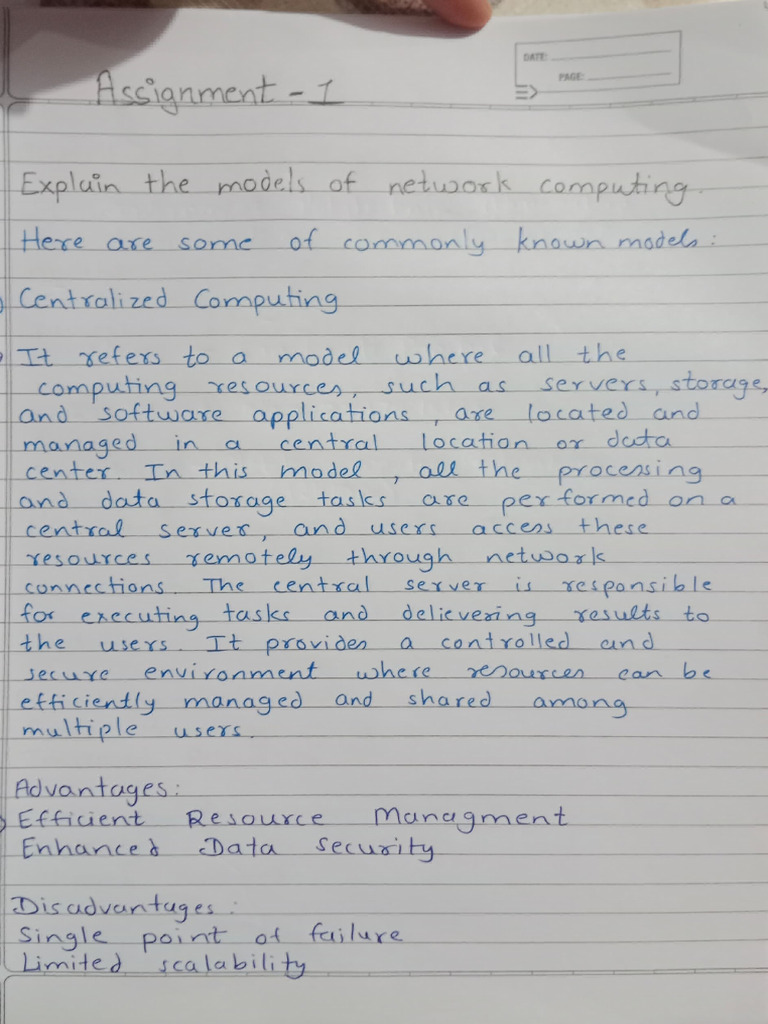 DATE:
PAGE:
Assignment - 1
Explain the models of network computing.
Here are some of commonly known models:
Centralized Computing
It refers to a model where all the
computing resources, such as servers, storage,
and software applications, are located and
managed in a central location or data
center. In this model, all the processing
and data storage tasks are performed on a
central server, and users access these
resources remotely through network
connections. The central server is responsible
for executing tasks and delievering results to
the users. It provides a controlled and
secure environment where resources can be
efficiently managed and shared among
multiple users.
Advantages:
Efficient Resource Managment
Enhanced Data Security
Disadvantages:
Single point of failure
Limited scalability